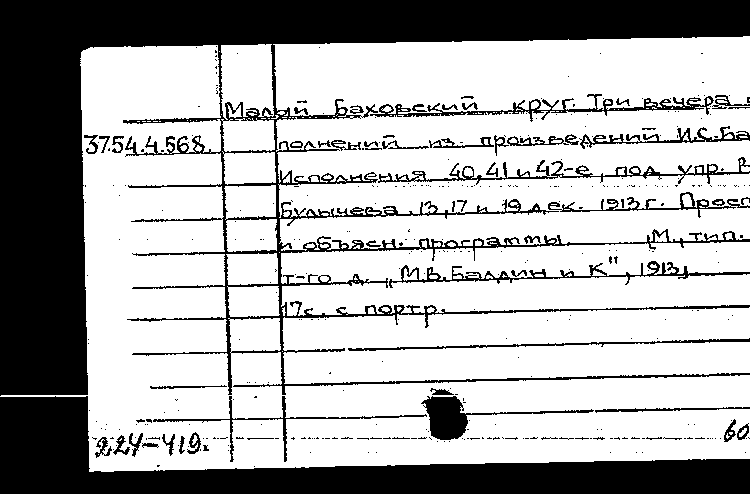 Малый Баховский круг. Три вечера
37.54.4.568. полнений из произведений И.С.Ба
Исполнения 40, 41 и 42-е, под упр. В
Булычева. 13, 17 и 19 дек. 1913 г. Просп
и объясн. программы. [М., тип.
т-го д. „М.В.Балдин и К", 1913]
17 с. с портр.
224-419. 60